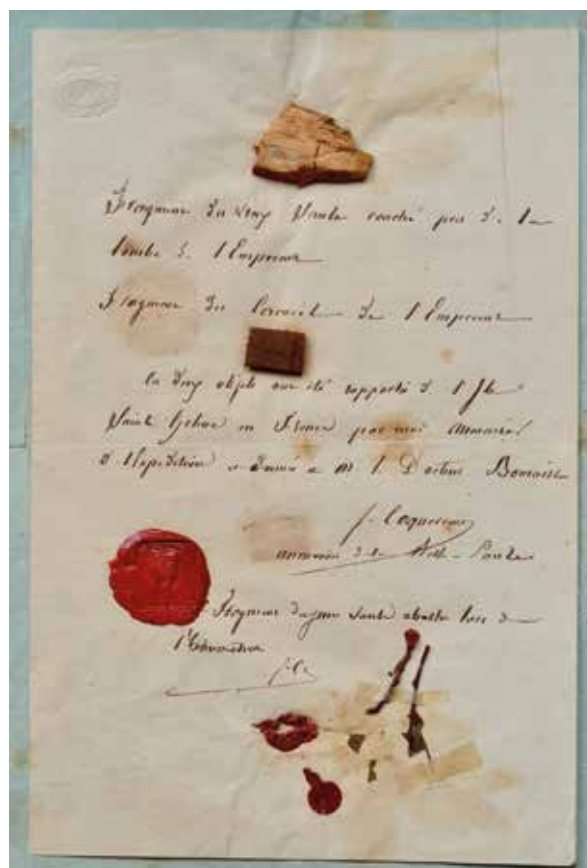 Fragment du Vieux Saule couché près de la
tombe de l'Empereur
Fragment du Cercueil de l'Empereur
Ces deux objets ont été rapportés de l'Ile
Sainte Hélène en France par moi aumonier
de l'Expédition et donnés à M. le Docteur
f. Coquereau
aumonier de la Belle-Poule
Fragment du jeune Saule abattu lors de
l'Exhumation
f.C.